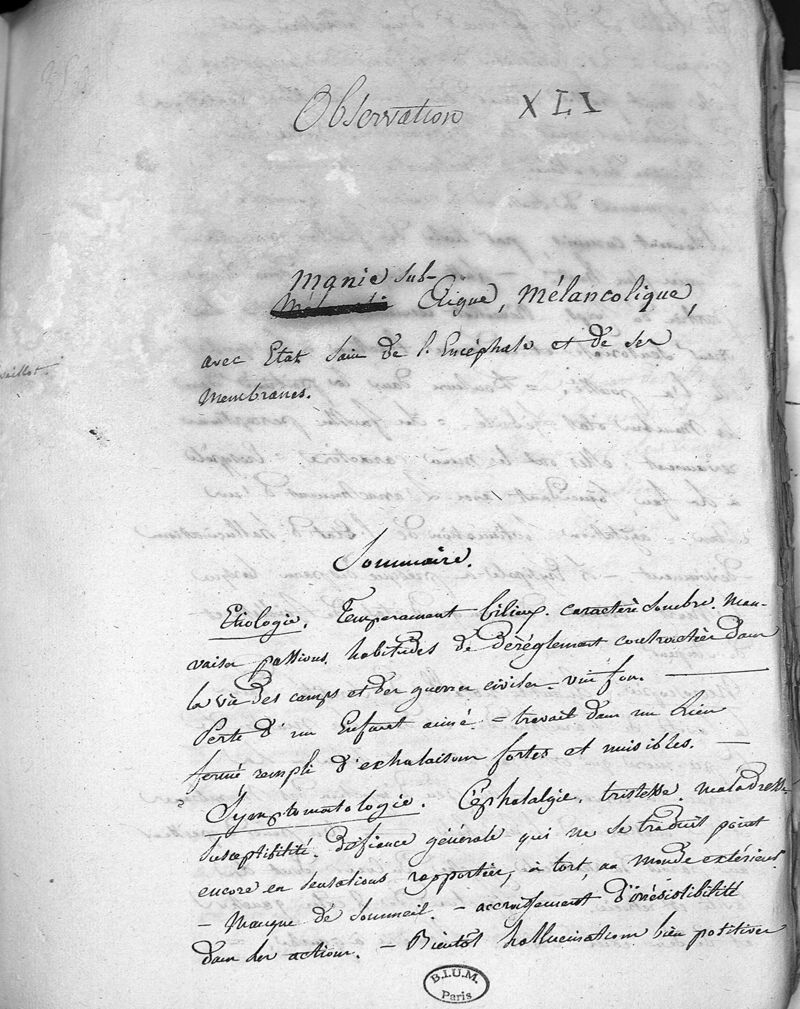 Observation XLI
Manie sub-
Aigue, Mélancolique,
avec Etat sain de l'Encéphale et de ses
Membranes.
Sommaire.
Etiologie. Temperament bilieux. caractère sombre. Mau-
vaises passions. habitudes de déréglement contractées dans
la vie des camps et des guerres civiles. vin fou.
Perte d'un Enfant aimé. = travail dans un lieu
fermé rempli d'exhalaisons fortes et nuisibles. —
Symptomatologie. Céphalalgie, tristesse, maladresse
susceptibilité. défiance générale qui ne se traduit point
encore en sensations rapportées, à tort, au monde extérieur.
— Manque de sommeil. — accroissement d'irrésistibilité
dans les actions. — Bientôt hallucinations bien positives
B.I.U.M.
Paris